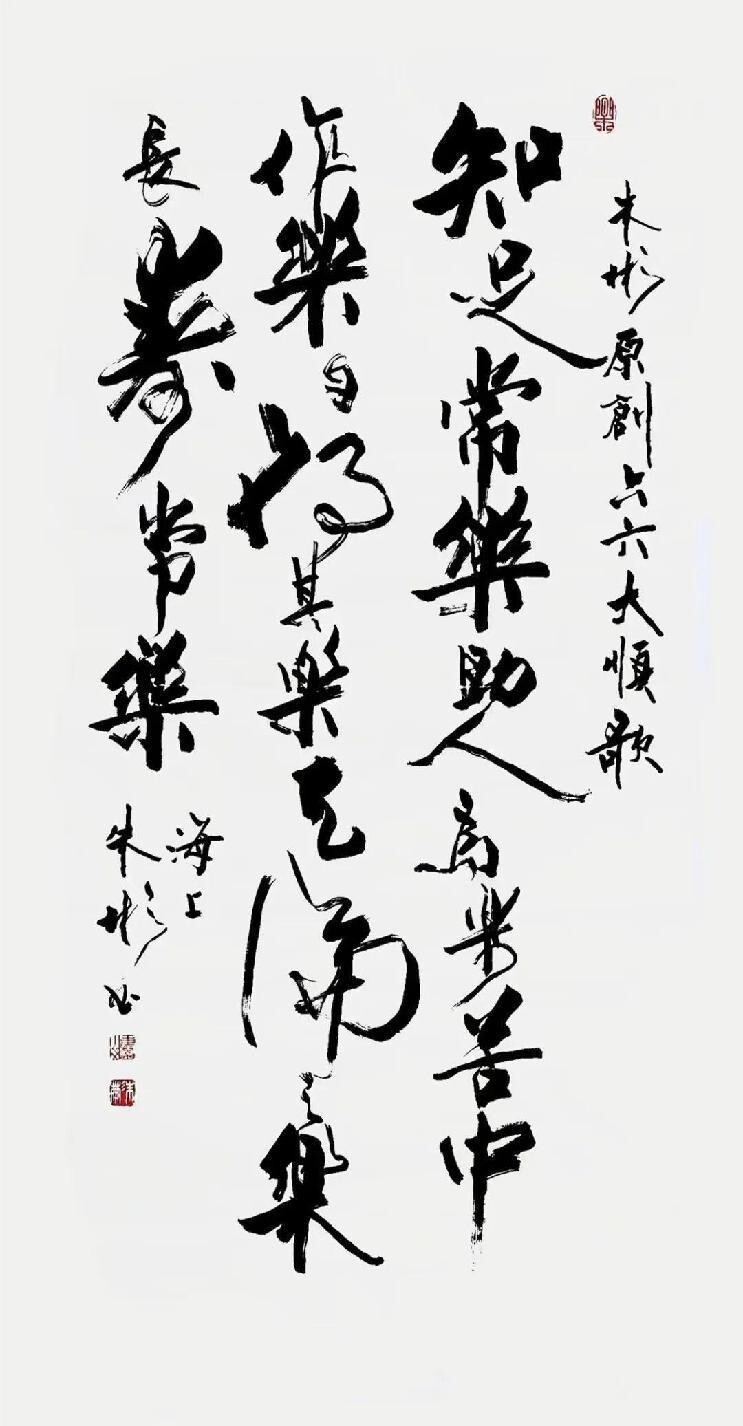 朱彬原創六六大順歌
知足常樂助人為樂苦中
作樂自得其樂天倫之樂
長壽常樂
海上
朱彬书